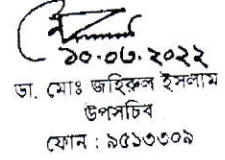 ১০.০৬.২০২২
ডা. মোঃ জহিরুল ইসলাম
উপসচিব
ফোন : ৯৫১৩৩০৯